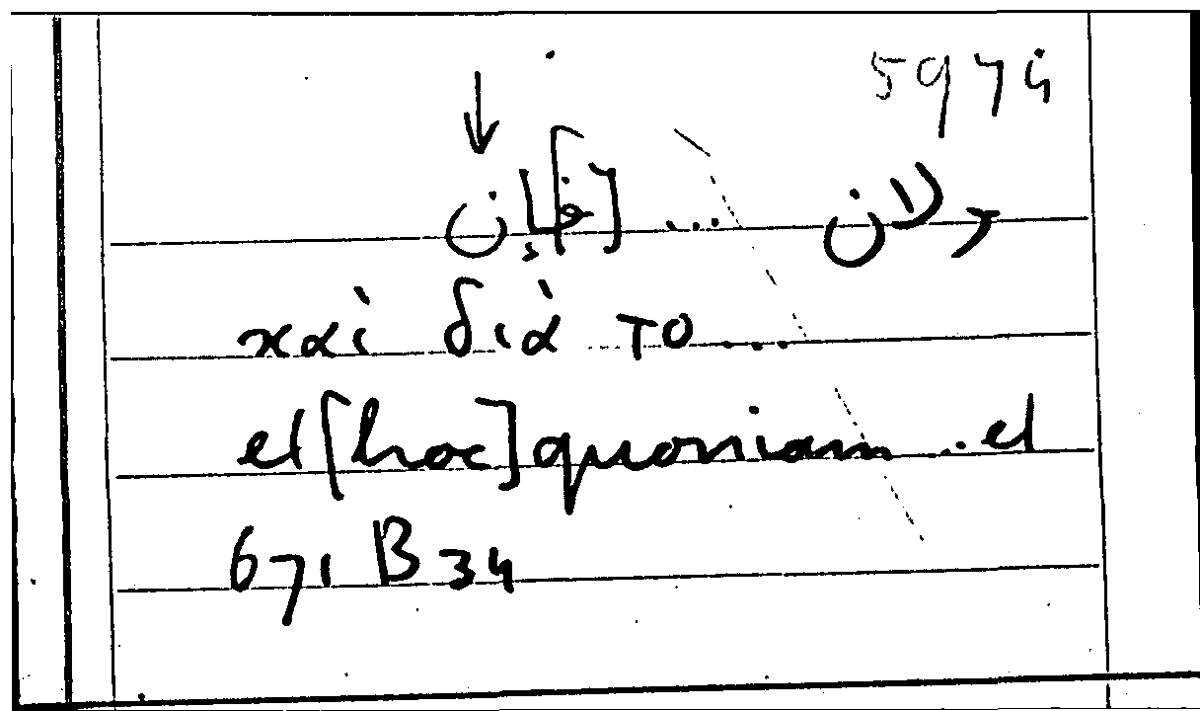 5974
↓
ولان ... [ف]إن
καὶ διὰ το...
et [hoc] quoniam .. et
671 B 34